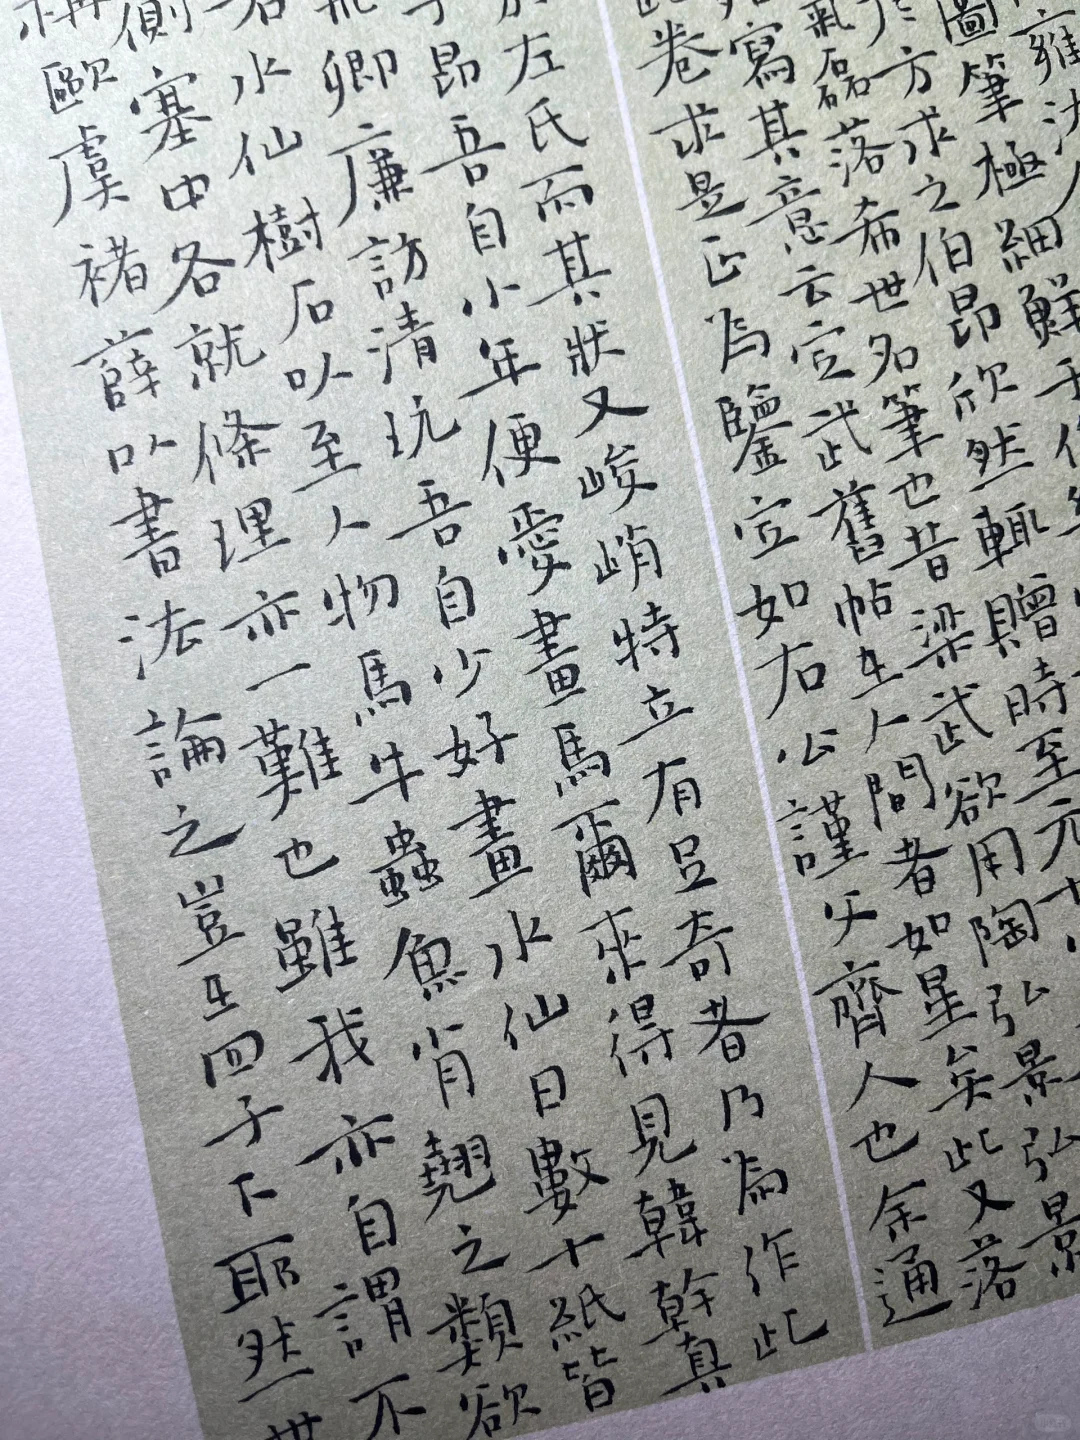 雍
圖筆極細鮮于
方求之伯昂欣然輒贈時至元
氣磊落希世名筆也昔梁武欲用陶弘景弘景
寫其意云定武舊帖在人間者如星矣此又落
此卷求是正為鑒定如右公謹父齊人也余通
左氏而其狀又峻峭特立有足奇者乃為作此
子昂吾自小年便愛畫馬爾來得見韓幹真
卿廉訪清玩吾自少好畫水仙日數十紙皆
水仙樹石以至人物馬牛蟲魚肖翹之類欲
側塞中各就條理亦一難也雖我亦自謂不
稱歐虞褚薛以書法論之豈在四子下耶然世